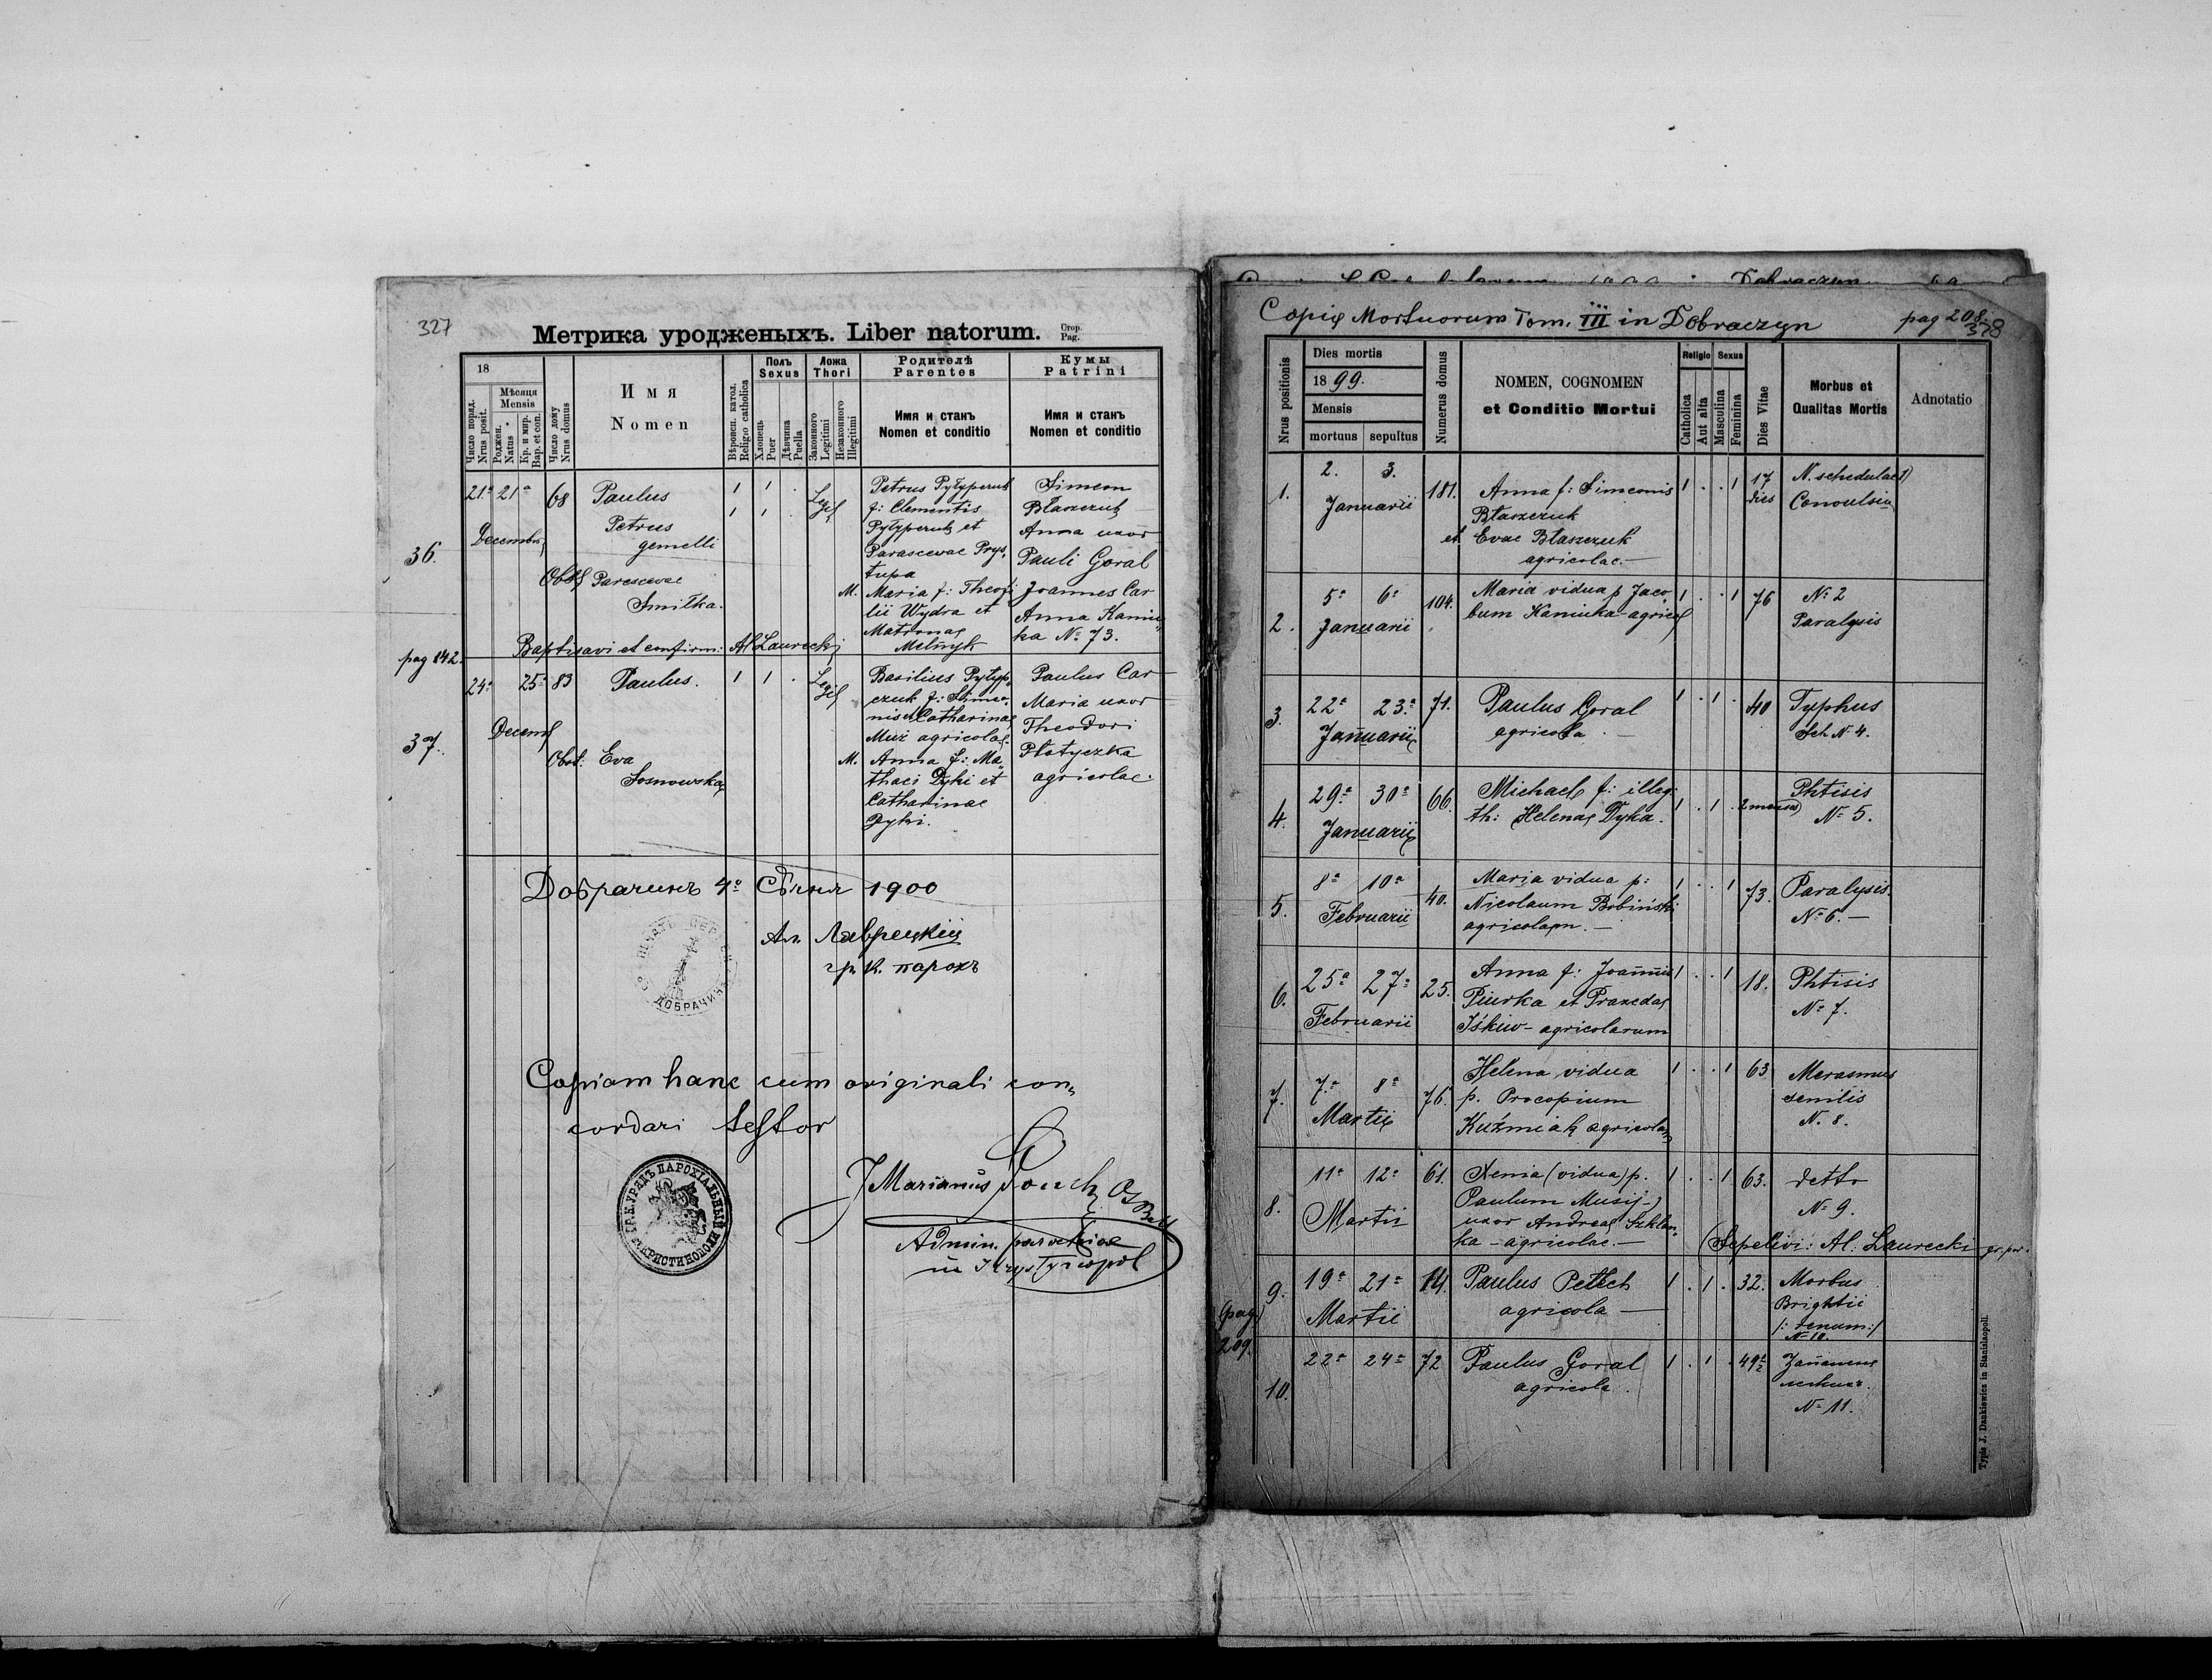 327
Метрика уродженыхъ. Liber natorum. Стор. Pag.
18
Число поряд. Nrus posit.
Мѣсяця Mensis
Роджен. Natus
Кр. и мир. Bap. et con.
Число дому Nrus domus
Имя
Nomen
Вѣроисп. катол. Religio catholica
Полъ Sexus
Хлопець Puer
Дѣвчина Puella
Ложа Thori
Законного Legitimi
Незаконного Illegitimi
Родителѣ Parentes
Имя и станъ
Nomen et conditio
Кумы Patrini
Имя и станъ
Nomen et conditio
36.
21ª 21ª
Decembris
68
Paulus
Petrus
gemelli
Obst: Parascevae
Smitka.
1 1 .
1 1 .
Legit
Petrus Pytyperuk
f: Clementis
Pytyperuk et
Parascevae Prys,
tupa
M. Maria f: Theofi
lii Wydra et
Matronae
Melnyk
Simeon
Błaszczuk
Anna uxor
Pauli Goral
Joannes Car
Anna Kamiu„
ka Nº 73.
Baptisavi et confirm: Al Laurecki
pag 142.
37.
24ª 25ª 83
Decemb
Paulus.
Obst: Eva
Sosnowska
1 1 .
Legit
Basilius Pytyp„
czuk f: Simeo„
nis et Catharinae
Muż agricolae.
M. Anna f: Ma„
thaei Dyki et
Catharinae
Dyki.
Paulus Car
Maria uxor
Theodori
Płotyczka
agricolae.
Добрачинъ 4º Сѣчня 1900
Ал Лаврецкій
гр. к. парохъ
ДОБРАЧИНѢ
Copiam hanc cum originali con„
cordari testor
ГР.К. УРЯДЪ ПАРОХІАЛЬНЫЙ ВЪ КРИСТИНОПОЛИ
J Marianus
Admin. parochiae
in Krystynopol
Copia Mortuorum Tom. III in Dobraczyn pag 208.
328
Nrus positionis
Dies mortis
1899.
Mensis
mortuus sepultus
Numerus domus
NOMEN, COGNOMEN
et Conditio Mortui
Religio
Catholica
Aut alta
Sexus
Masculina
Feminina
Dies Vitae
Morbus et
Qualitas Mortis
Adnotatio
1. 2. 3.
Januarii
181.
Anna f: Simeonis
Błaszczuk
et Evae Błaszczuk
agricolae.—
1 . . 1
17 dies
N. schedulae 1)
Convulsiu
2. 5ª 6ª
Januarii
104.
Maria vidua p Jaco„
bum Kamiuka-agricol
1 . . 1
76
Nº 2
Paralysis
3. 22ª 23ª
Januarii
71.
Paulus Goral
agricola.—
1 . 1 .
40
Typhus
Sch Nº 4.
4. 29ª 30ª
Januarii
66.
Michael f: illeg.
th: Helenae Dyka.
1 . 1 .
2 menses
Phtisis
Nº 5.
5. 8ª 10ª
Februarii
40.
Maria vidua p:
Nicolaum Bobiński
agricolam.—
1 . . 1
73.
Paralysis.
Nº 6.—
6. 25ª 27ª
Februarii
25.
Anna f: Joannis
Piurka et Praxedae
Iśkiw- agricolarum
1 . . 1
18.
Phtisis
Nº 7.
7. 7ª 8ª
Martii
76.
Helena vidua
p. Procopium
Kuźmiak agricolam
1 . . 1
63.
Marasmus
senilis
N. 8.
8. 11ª 12ª
Martii
61.
Xenia (vidua) p.
Paulum Musij-)
uxor Andreae Szklan„
ka - agricolae.—
1 . . 1
63.
detto
Nº 9.
(Sepelivi: Al: Laurecki gr. par.
(pag)
209.
9. 19ª 21ª
Martii
14.
Paulus Petech
agricola —
1 . 1 .
32.
Morbus
Brightii
/: renum:/
Nº 10.
10. 22ª 24ª
72
Paulus Goral
agricola.
1 . 1 .
49½
Запаленє
легких.
Nº 11.
Typis J. Dankiewicz in Stanislaopoli.